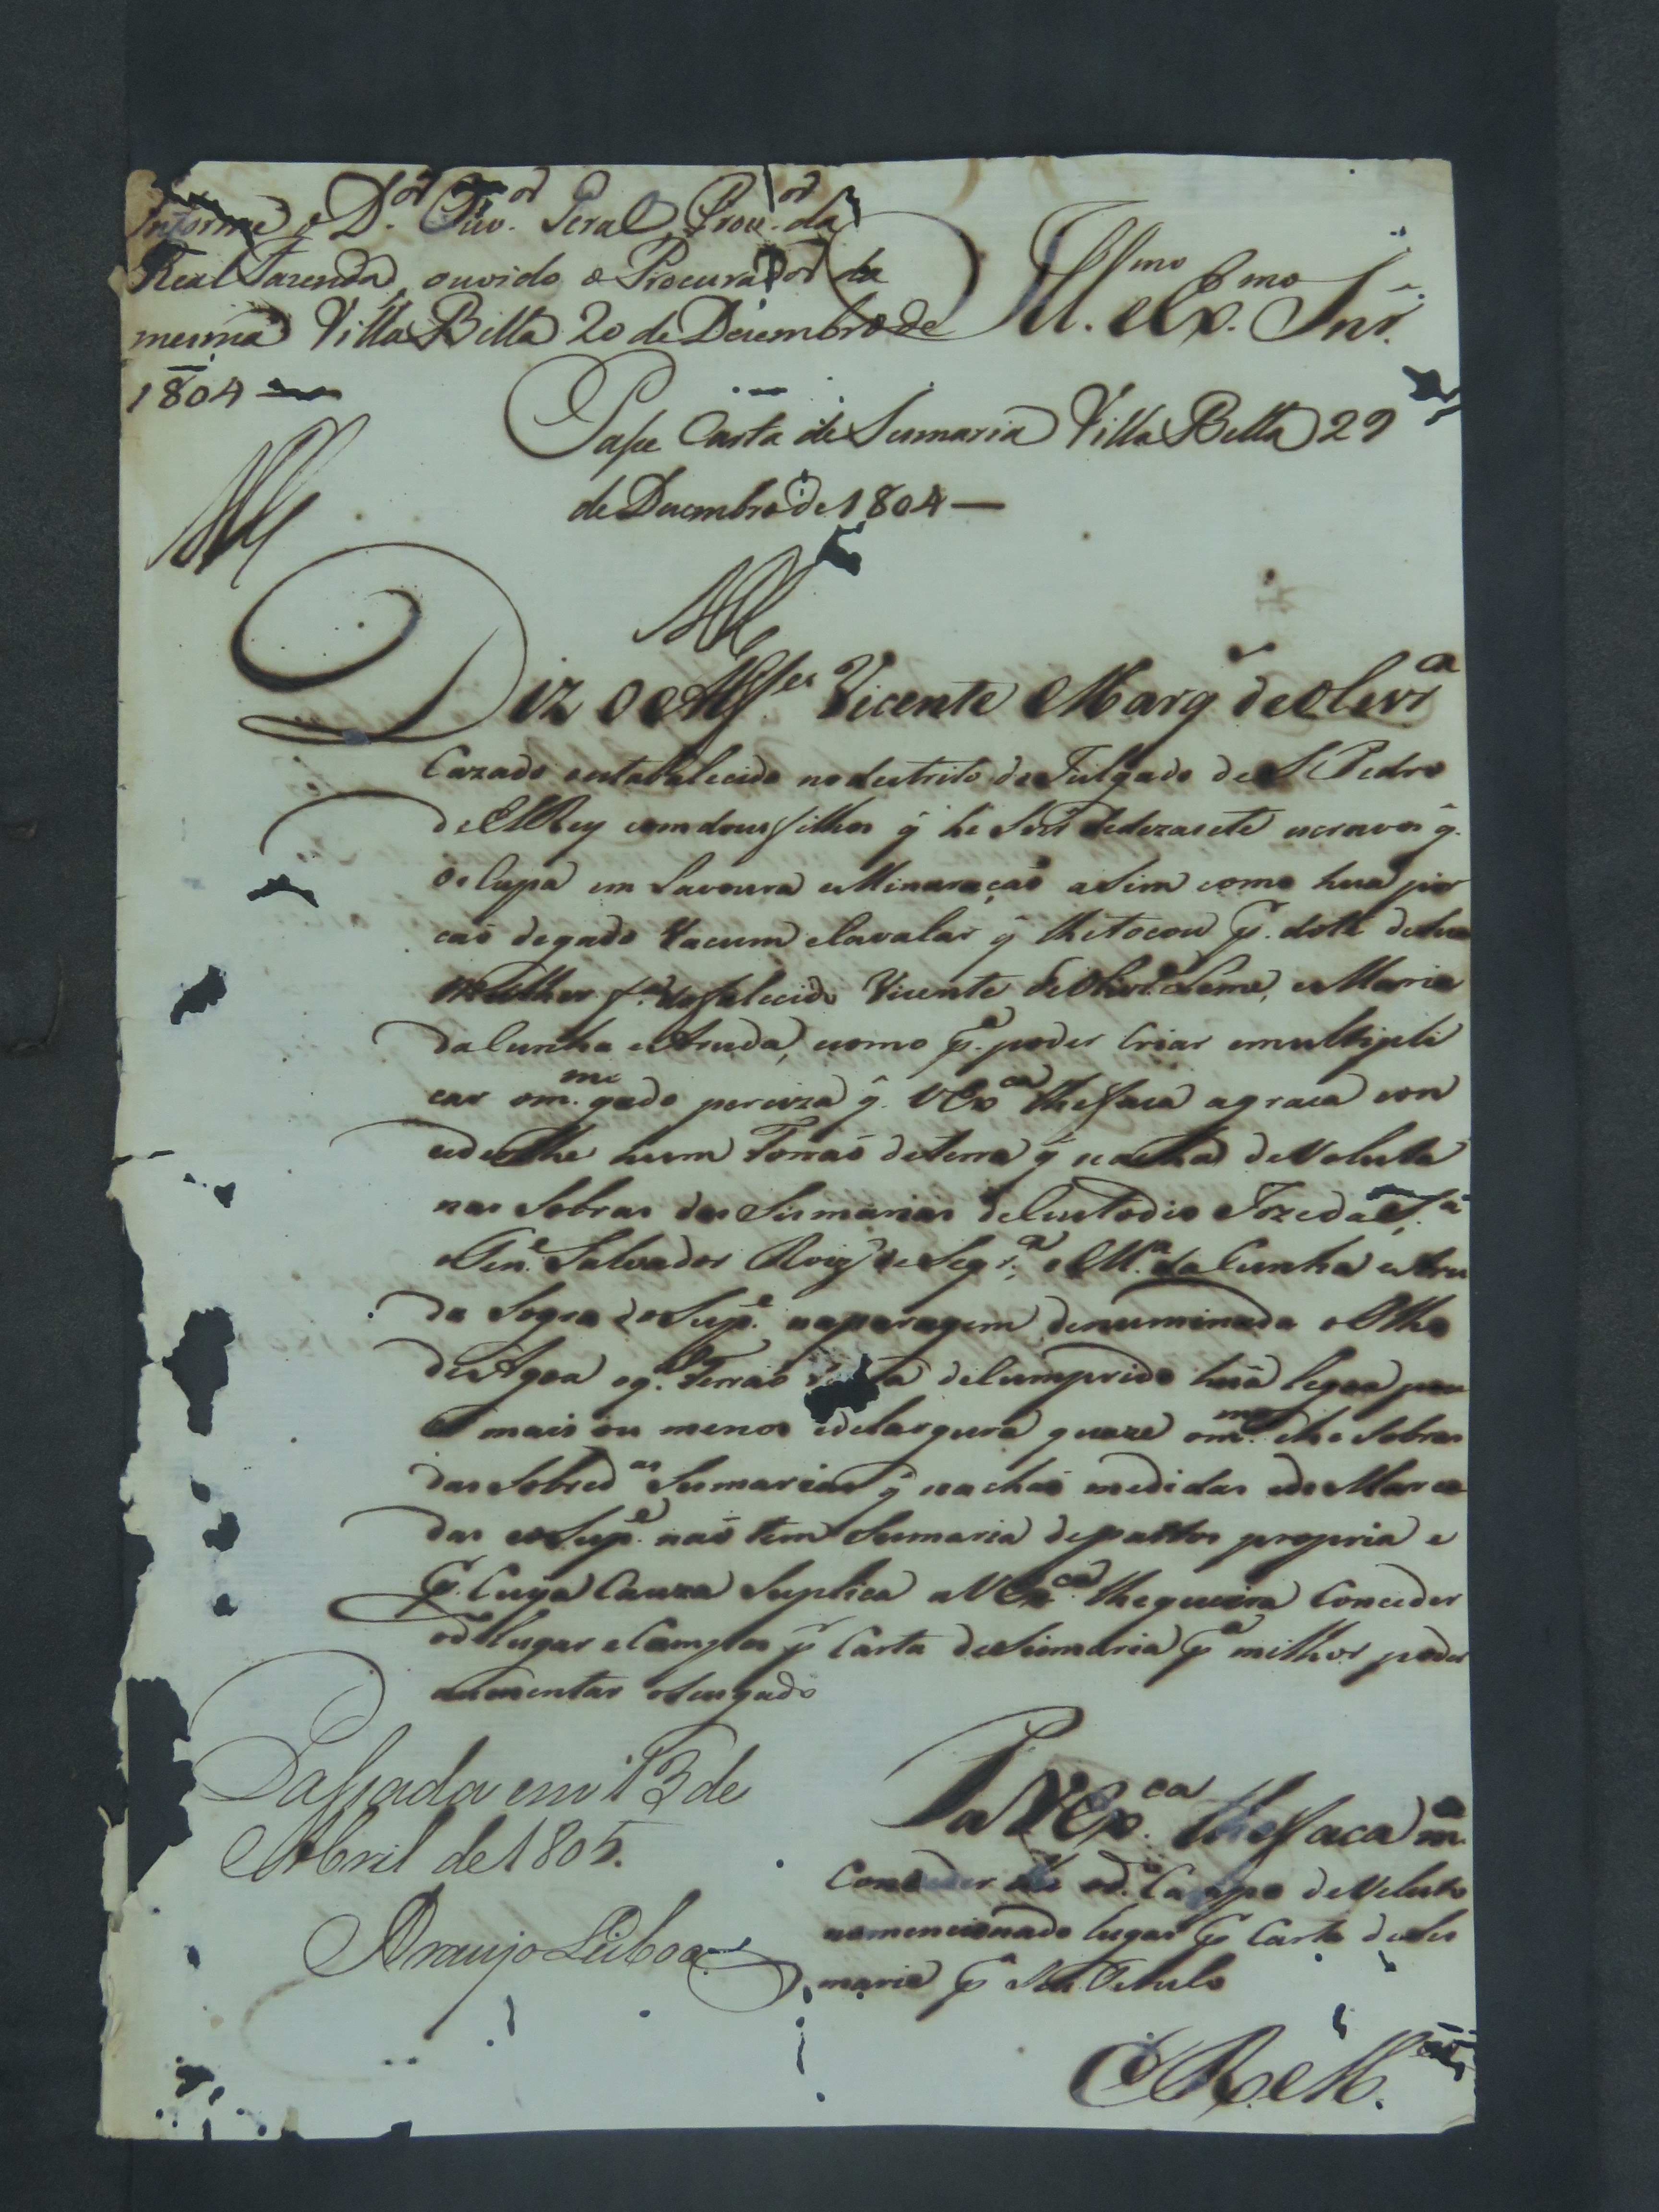 Informe o D.or Ouv.or Geral, Prov.or da
Real Fazenda, ouvido o Procurador da
mesma Villa Bella 20 de Dezembro de
1804 —
Ill.mo e Ex.mo Snr.
Passe Carta de Sesmaria Villa Bella 29
de Dezembro de 1804 —
Diz o Alf.es Vicente Marq̃ de Olivr.a
Cazado estabalecido no destrito do Julgado de S. Pedro
de ElRey com dous filhos q̃ he dedezasete escravos q̃.
Ocupa em Lavoura e Minaração asim como hua por
caõ de gado Vacum e Cavalar q̃ lhe tocou p.r dote de sua
mulher f.a do falecido Vicente de Olivr.a Leme, e Maria
da Cunha e Aruda, e como p.a poder Criar e multipli
car o m.mo gado perciza q̃. V Ex.ca lhe faça a graca con
ceder lhe hum Torraõ de terra q̃ se acha deVoluta
nas Sobras das Sismarias de Custodio Joze da S.a
Ten.e Salvador Roiz' de Seqr.a, e M.a da Cunha e Aru
da Sogra do Sup.e na paragem denuminada o Olho
de Agoa o q. Terrao de Cumprido huã legoa pou
co mais ou menos e de largura quaze o m.mo e he Sobras
das Sobred.as Sesmarias q̃ se achaõ medidas e de Marca
das e o Sup.e naõ tem Sesmaria de pastos propria e
P.r Cuya Cauza Suplica a V Ex.ca lhe queira Conceder
o d.o lugar e Campos p.r Carta de Sismaria p.a milhor poder
aumentar o seu gado
P a V Ex.ca lhe faca m.
Conceder lhe o d.o Campo deVoluto
no mencionado lugar p.r Carta de Ses
maria p.r seu Titulo
E R. M.ce
Passada em 13 de
Abril de 1805.
Araujo Lisboa